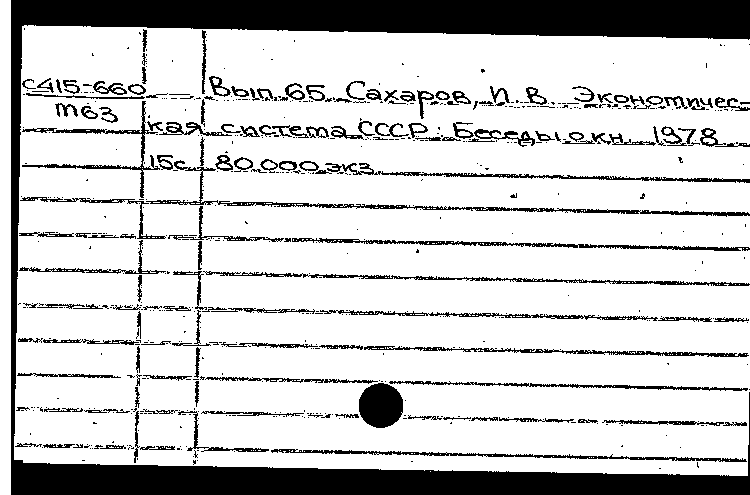 С415-660 Вып. 65. Сахаров, И. В. Экономичес-
т63 кая система СССР: Беседы о кн. 1978
15с. 80.000 экз.